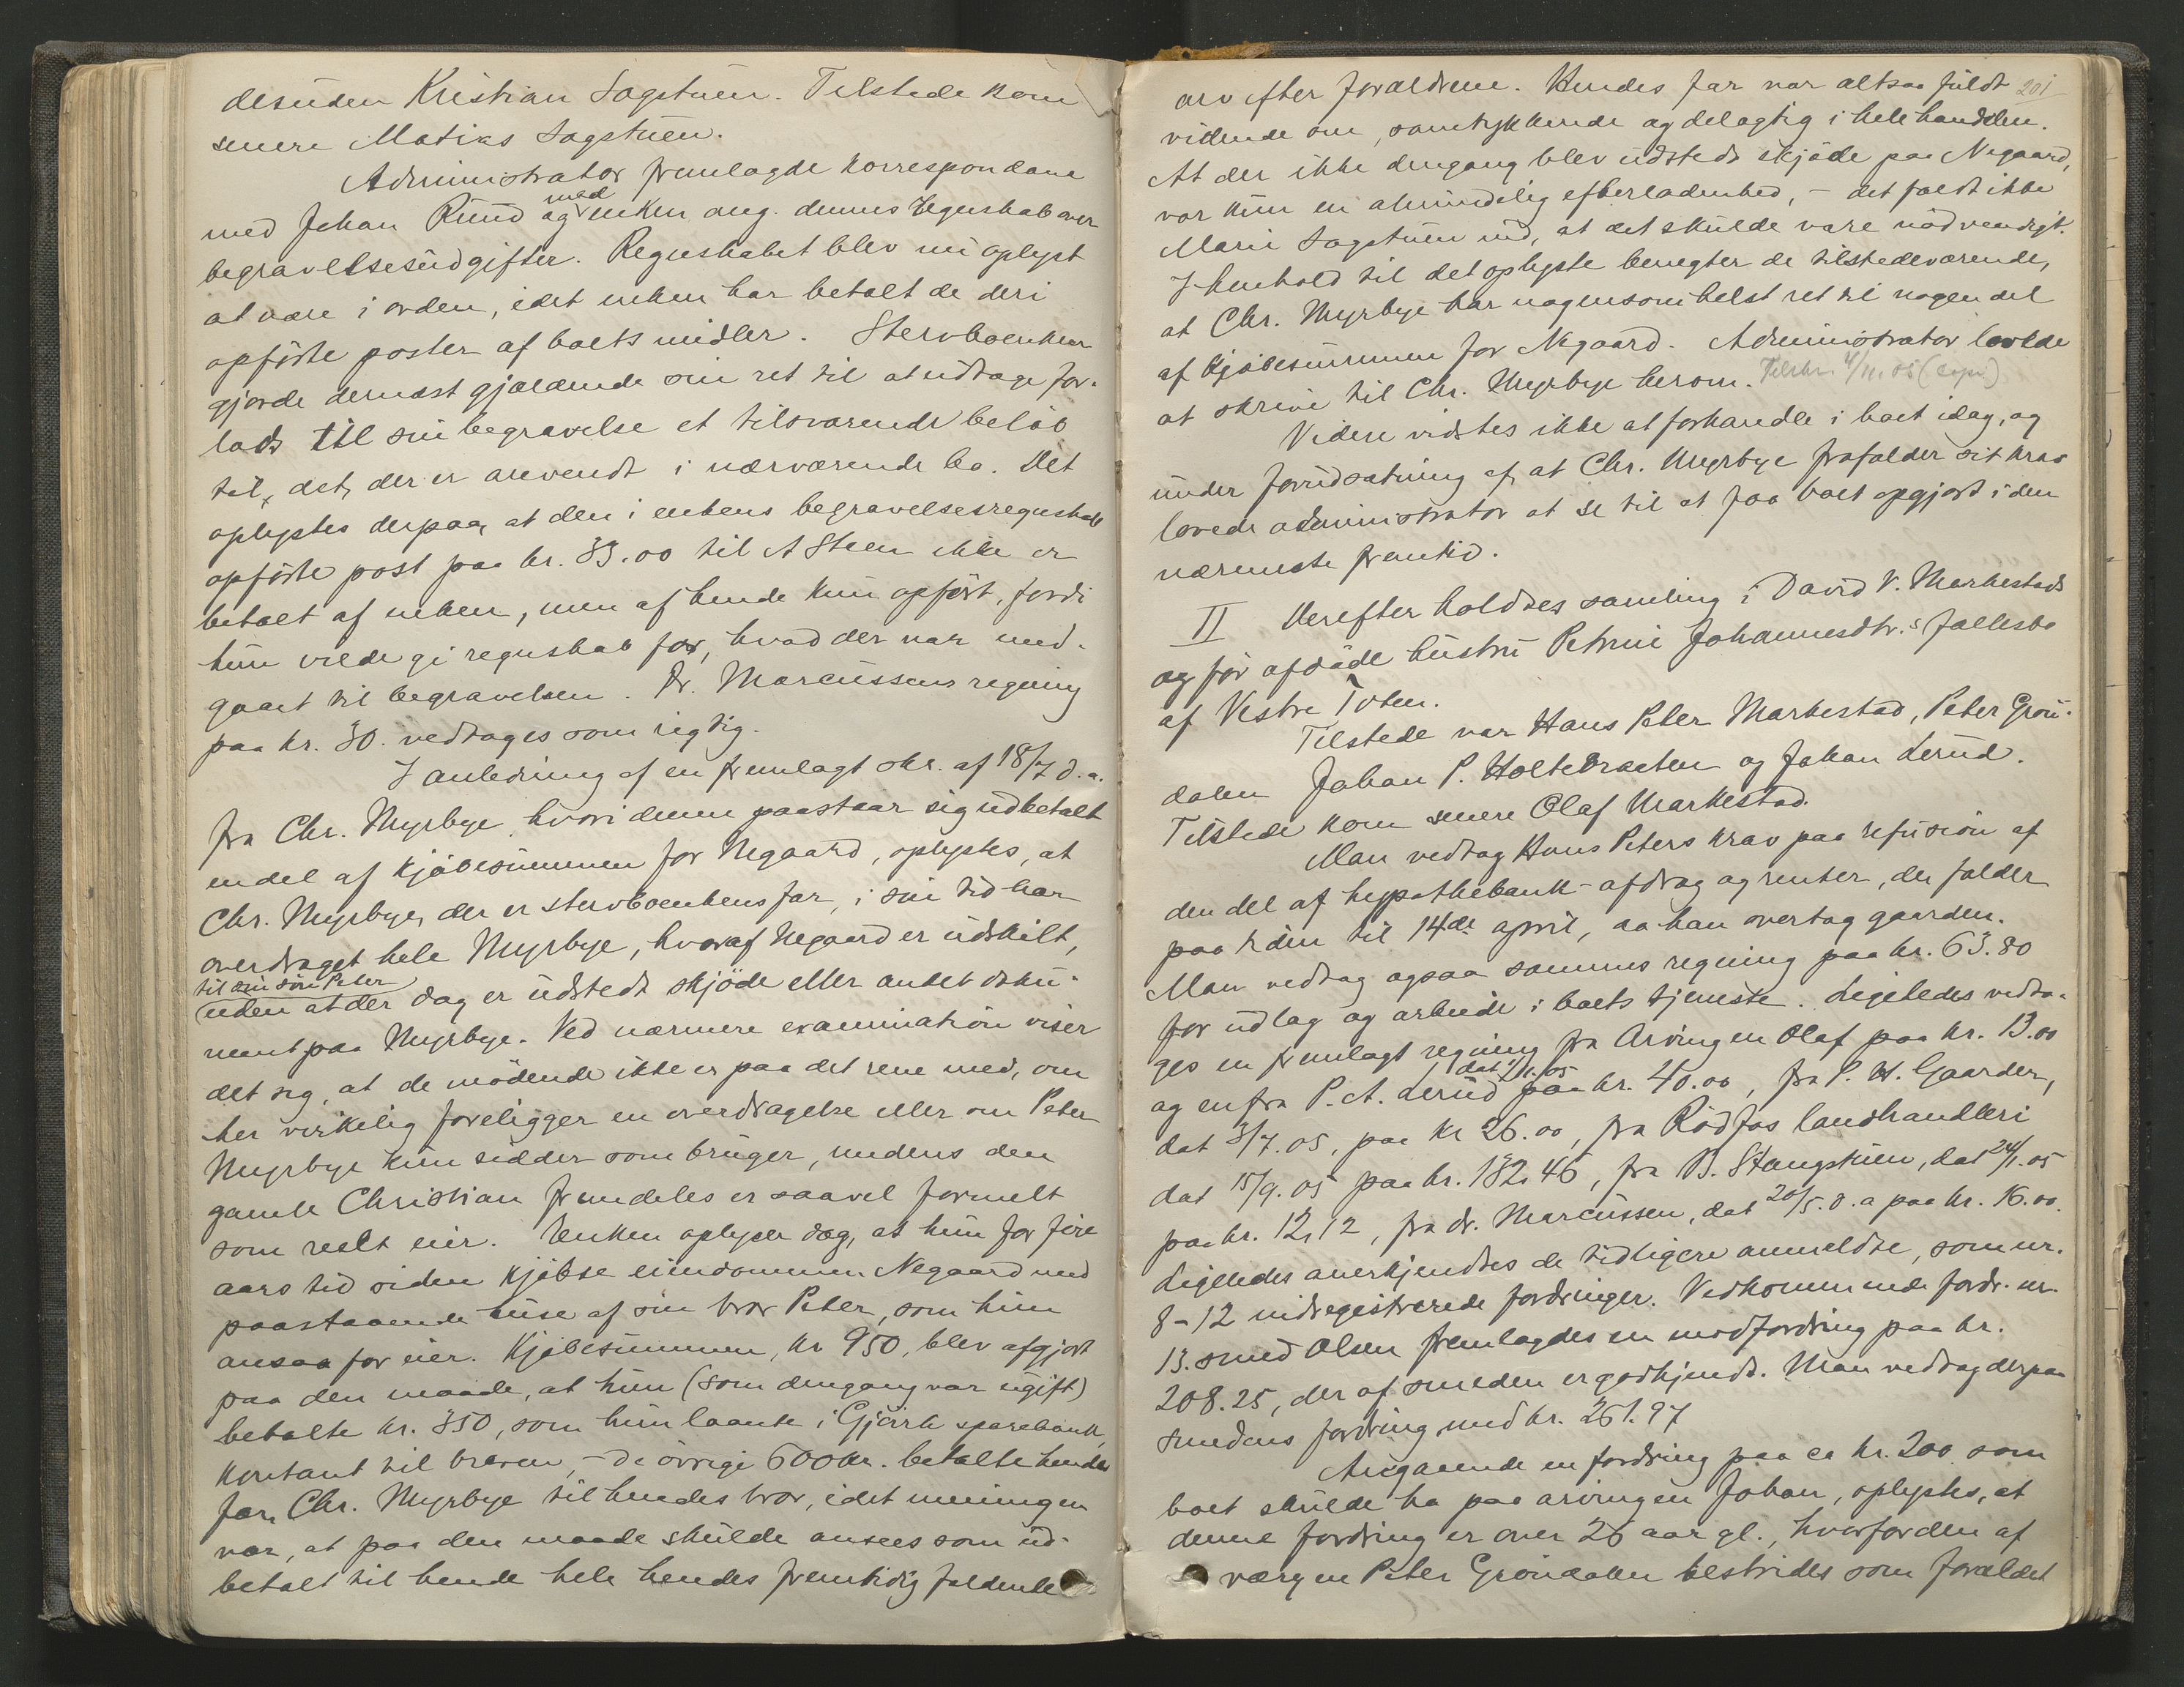 desuden Kristian Sagstuen. Tilstede kom
senere Matias Sagstuen.
Administrator fremlagde korrespondane
med Johan Ruud og med enken ang. dennes regnskab over
begravelsesudgifter. Regnskabet blev nu oplyst
at være i orden, idet enken har betalt de deri
opførte poster af boets midler. Stervboenken
gjorde dernæst gjældende sin ret til at udtage for-
lods til sin begravelse et tilsvarende beløb
til det, der er anvendt i nærværende bo. Det
oplystes derpaa, at den i enkens begravelsesregnskab
opførte post paa kr. 33.00 til A Steen ikke er
betalt af enken, men af hende kun opført, fordi
hun vilde gi regnskab for, hvad der var med-
gaaet til begravelsen. Dr. Marcussens regning
paa kr. 30. vedtages som rigtig.
I anledning af en fremlagt skr. af 18/7 d.a.
fra Chr. Myrbye, hvori denne paastaar sig udbetalt
en del af kjøbesummen for Negaard, oplystes, at
Chr. Myrbye, der er stervboenkens far, i sin tid har
overdraget hele Myrbye, hvoraf Negaard er udskilt,
til sin søn Peter
uden at der dog er udstedt skjøde eller andet doku-
ment paa Myrbye. Ved nærmere examination viser
det sig, at de mødende ikke er paa det rene med, om
her virkelig foreligger en overdragelse eller om Peter
Myrbye kun sidder som bruger, medens den
gamle Christian fremdeles er saavel formelt
som reelt eier. Enken oplyser dog, at hun for fire
aars tid siden kjøbte eiendommen Negaard med
paastaaende huse af sin bror Peter, som hun
ansaa for eier. Kjøbesummen, kr 950, blev afgjort
paa den maade, at hun (som dengang var ugift)
betalte kr. 350, som hun laante i Gjøvik sparebank,
kontant til broren, - de øvrige 600 kr. betalte hendes
far, Chr. Myrbye til hendes bror, idet meningen
var, at paa den maade skulde ansees som ud-
betalt til hende hele hendes fremtidig faldende
201
arv efter forældrene. Hendes far var altsaa fuldt
vidende om, samtykkende og delagtig i hele handelen.
At der ikke dengang blev udstedt skjøde paa Negaard,
var kun en almindelig efterladenhed, - det faldt ikke
Marie Sagstuen ind, at det skulde være nødvendigt.
I henhold til det oplyste benegter de tilstedeværende,
at Chr. Myrbye har nogensomhelst ret til nogen del
af kjøbesummen for Negaard. Administrator lovede
at skrive til Chr. Myrbye herom.
Videre vidstes ikke at forhandle i boet idag, og
under forudsætning af, at Chr. Myrbye frafalder sit krav
lovede administrator at se til at faa boet opgjort i den
nærmeste fremtid.
II Derefter holdtes samling i David P. Markestads
og før afdøde hustru Petrine Johannesdtr.s fællesbo
af Vestre Toten.
Tilstede var Hans Peter Markestad, Peter Grøn-
dalen Johan P. Holtebraaten og Johan Lerud.
Tilstede kom senere Olaf Markestad.
Man vedtog Hans Peters krav paa refusion af
den del af hypothekbank-afdrag og renter, der falder
paa tiden til 14de april, da han overtog gaarden.
Man vedtog ogsaa sammes regning paa kr. 63.80
for udlæg og arbeide i boets tjeneste. Ligeledes vedto-
ges en fremlagt regning fra Arvingen Olaf paa kr. 13.00
og en fra P. A. Lerud dat 1/11.05 paa kr. 40.00, fra P. H. Gaarder,
dat 3/7.05, paa kr 26.00, fra Rødfos landhandleri
dat 15/9.05 paa kr. 182.46, fra B. Stangstuen, dat 24/1.05
paa kr. 12,12, fra dr. Marcussen, dat 20/5.d.a paa kr. 16.00.
Ligeledes anerkjendtes de tidligere anmeldte, som nr.
8-12 indregistrerede fordringer. Vedkommende fordr. nr.
13. smed Olsen fremlagdes en modfordring paa kr.
208.25, der af smeden er godkjendt. Man vedtog derpaa
smedens fordring med kr. 261.97
Angaaende en fordring paa ca kr. 200 som
boet skulde ha paa arvingen Johan, oplystes, at
denne fordring er over 26 aar gl., hvorfor den af
værgen Peter Grøndalen bestrides som forældet